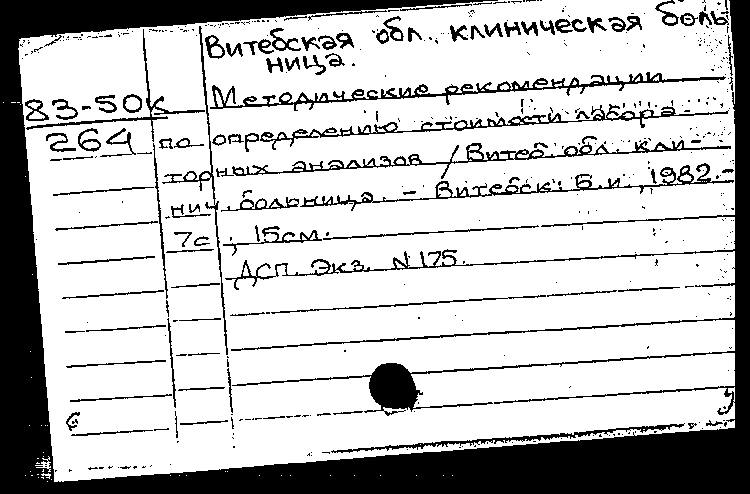 Витебская обл. клиническая боль
ница.
83-50к Методические рекомендации
264 по определению стоимости лабора-
торных анализов / Витеб. обл. кли-
нич. больница. - Витебск: Б.и., 1982.-
7с.; 15см.
ДСП. Экз. N 175.